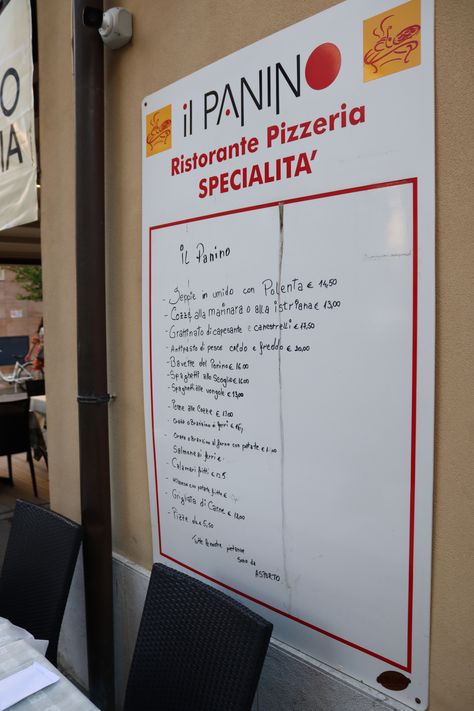 il PANINO
Ristorante Pizzeria
SPECIALITA'
IL Panino
- Seppie in umido con Polenta € 14,50
- Cozze alla marinara o alla istriana € 13,00
- Gratinato di capesante e canestrelli € 17,50
- Antipasto di pesce caldo e freddo € 20,00
- Bavette del Panino € 16.00
- Spaghetti allo Scoglio € 16.00
- Spaghetti alle vongole € 13,00
- Penne alle Cozze € 13.00
- Orata o Branzino ai ferri €
- Orata o Branzino al forno con patate €
Salmone ai ferri €
- Calamari fritti €
- Milanese con patate fritte €
- Grigliata di Carne €
- Pizze da € 5,50
Tutte le nostre pietanze
Sono da
ASPORTO
O
MA